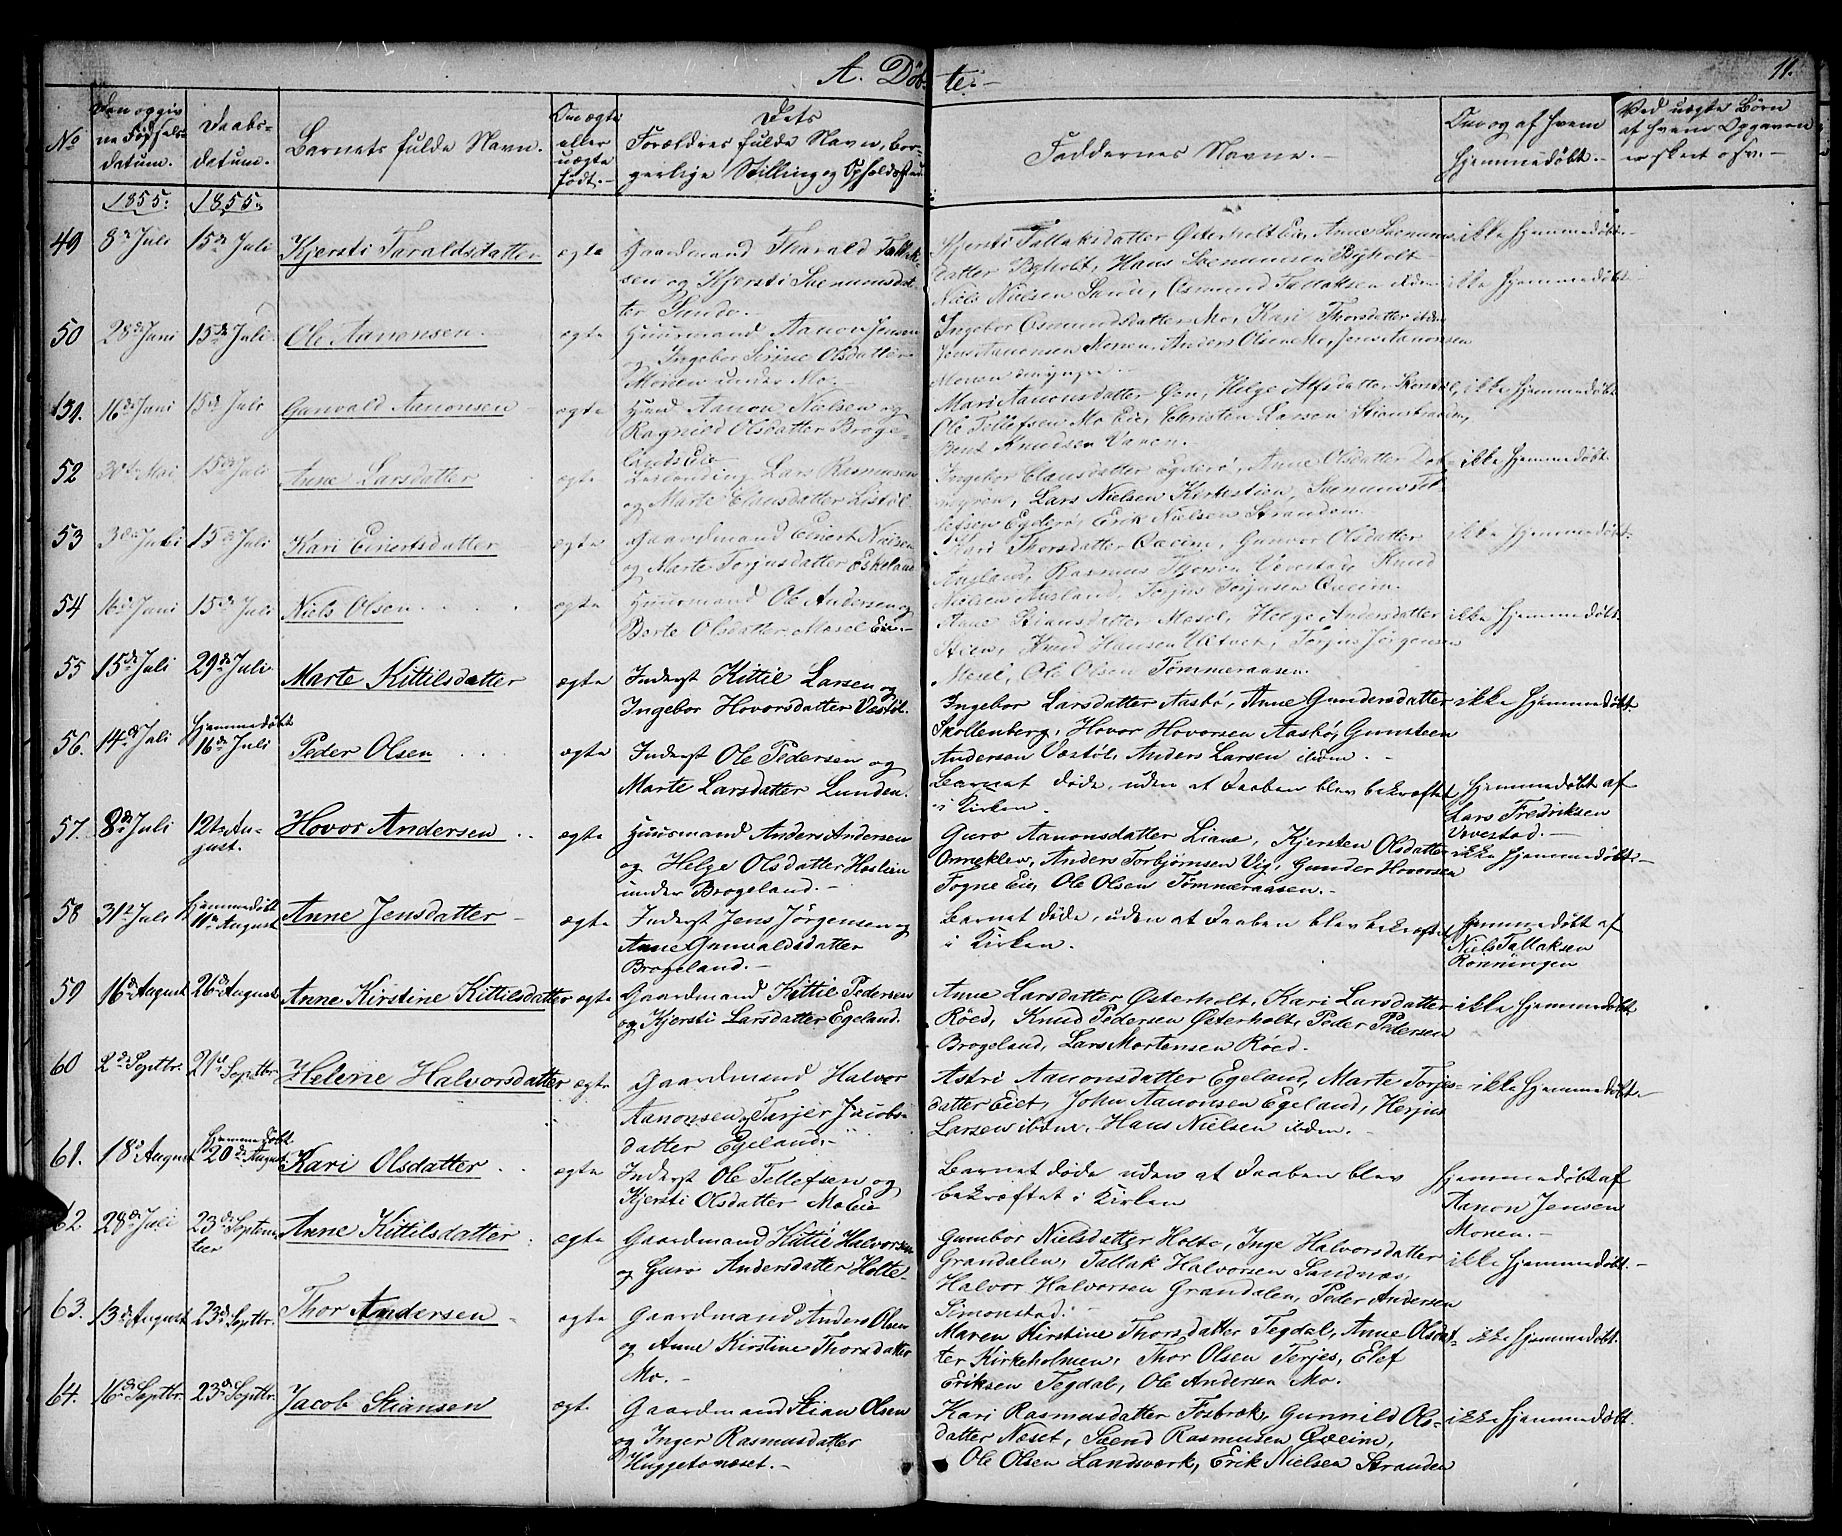 A. Døb-
te.-
11.
No
Den opgiv
ne Fødsels
datum.
Daabs-
datum.
Barnets fulde Navn.
Om ægte
eller
uægte
født.-
Dets
Forældres fulde Navn, bor-
gerlige Stilling og Opholdssted
Faddernes Navne.-
Om og af hvem
hjemmedøbt.-
Ved uægte Børn
af hvem Opgaven
er skeet osv.-
1855.
1855.
49
8de Juli
15de Juli
Kjersti Taraldsdatter
ægte
Gaardmand Tharald Tallak-
sen og Kjersti Sænmunsdat-
ter Sunde.-
Kjersti Tallaksdatter Østerholt Eie, Anne Sænmuns-
datter Byholt, Hans Sænmunsen Byholt
Niels Nielsen Sunde, Osmund Tallaksen ibden
ikke hjemmedøbt.-
50
28de Juni
15de Juli
Ole Aanonsen.
ægte
Huusmand Aanon Jensen
og Ingebor Serine Olsdatter
Monen under Mo.-
Ingebor Osmundsdatter Mo, Kari Thorsdatter ibden
Jens Aanonsen Monen, Anders Olsen Mo, Jens Aanonsen
Monen den yngre.-
ikke hjemmedøbt
51.
16de Juni
15de Juli
Gunvald Aanonsen
ægte
Huusmd Aanon Nielsen og
Ragnild Olsdatter Broge-
lands Eie
Mari Aanonsdatter Øen, Helge Alfsdatter
Ole Tellefsen Mo Eie, Christen Larsen
Bent Knudsen Vaaen.
ikke hjemmedøbt
52
30te Mai
15de Juli
Anne Larsdatter
ægte
Lars Rasmusen
og Marte Clausdatter Listøl.
Ingebor Clausdatter Egderø, Anne Olsdatter
Lars Nielsen Sænmun Tel-
lefsen Egderø, Erik Nielsen Stranden.
ikke hjemmedøbt
53
3de Juli
15de Juli
Kari Einertsdatter
ægte
Gaardmand Einert Nielsen
og Marte Torjusdatter Eskeland
Kari Thorsdatter Qveim, Gunvor Olsdatter
Ausland, Rasmus Thorsen Vevestad, Knud
Nielsen Ausland, Torjus Torjusen Qveim.
ikke hjemmedøbt.
54
16de Juni
15de Juli
Niels Olsen
ægte
Huusmand Ole Andersen og
Berte Olsdatter Mæsel Eie.-
Anne Stiansdatter Mæsel, Helge Andersdatter
Stien, Knud Hansen Torjus Jørgensen
Mæsel, Ole Olsen Tømmeraasen.
ikke hjemmedøbt
55
15de Juli
29de Juli
Marte Kittilsdatter
ægte
Inderst Kittil Larsen og
Ingebor Hovorsdatter Væstøl.
Ingebor Larsdatter Aasbø, Anne Gundersdatter
Skollenberg, Hovor Hovorsen Aasbø, Gunsteen
Andersen Væstøl, Anders Larsen ibden.-
ikke hjemmedøbt.
56.
14de Juli
Hjemmedøbt
16de Juli
Peder Olsen
ægte
Inderst Ole Pedersen og
Marte Larsdatter Lunden.
Barnet døde, uden at Daaben blev bekræftet
i Kirken.
Hjemmedøbt af
Lars Fredriksen
Vevestad.-
57.
8de Juli
12te Au-
gust.
Hovor Andersen
ægte
Huusmand Anders Andersen
og Helge Olsdatter Heslien
under Brogeland.-
Guro Aanonsdatter Liane, Kjersten Olsdatter
Omneklev, Anders Torbjørnsen Vig, Gunder Hovorsen
Fogne Eie, Ole Olsen Tømmeraasen.-
ikke hjemmedøbt.-
58
31te Juli
Hjemmedøbt
11te August
Anne Jensdatter
ægte
Inderst Jens Jørgensen og
Anne Gunvaldsdatter
Brogeland.-
Barnet døde, uden at Daaben blev bekræftet
i Kirken.
Hjemmedøbt af
Niels Tallaksen
Rønningen
59
16de August
26de August
Anne Kirstine Kittilsdatter
ægte
Gaardmand Kittil Pedersen
og Kjersti Larsdatter Egeland.
Anne Larsdatter Østerholt, Kari Larsdatter
Røed, Knud Pedersen Østerholt, Peder Pedersen
Brogeland, Lars Mortensen Røed.
ikke hjemmedøbt
60
2de Septbr.
21de Septbr.
Helene Halvorsdatter
ægte
Gaardmand Halvor
Aanonsen, Tarjer Jacobs-
datter Egeland.-
Astri Aanonsdatter Egeland, Marte Torjes-
datter Eiet, John Aanonsen Egeland, Herjus
Larsen ibden, Hans Nielsen ibden.
ikke hjemmedøbt.-
61.
18de August
Hjemmedøbt
20de August
Kari Olsdatter
ægte
Inderst Ole Tellefsen og
Kjersti Olsdatter Mo Eie
Barnet døde uden at Daaben blev
bekræftet i Kirken
Hjemmedøbt af
Aanon Jensen
Monen.-
62
28de Juli
23de Septem-
ber
Anne Kittilsdatter
ægte
Gaardmand Kittil Halvorsen
og Guro Andersdatter Holte-
Gumbor Nielsdatter Holte, Inge Halvorsdatter
Grandalen, Tallak Halvorsen Sandnæs,
Halvor Halvorsen Grandalen, Peder Andersen
Simonstad.
ikke hjemmedøbt.-
63.
13de August
23de Septbr.
Thor Andersen
ægte
Gaardmand Anders Olsen
og Anne Kirstine Thorsdatter
Mo.-
Maren Kirstine Thorsdatter Tegdal, Anne Olsdat-
ter Kirkeholmen, Thor Olsen Terjes, Elef
Eriksen Tegdal, Ole Andersen Mo.
ikke hjemmedøbt.
64.
16de Septbr.
23de Septbr.
Jacob Stiansen
ægte
Gaardmand Stian Olsen
og Inger Rasmusdatter
Huggetonæset.-
Kari Rasmusdatter Fosbræk, Gunnild Ols-
datter Næset, Svend Rasmusen Qveim,
Ole Olsen Landsværk, Erik Nielsen Stranden
ikke hjemmedøbt.